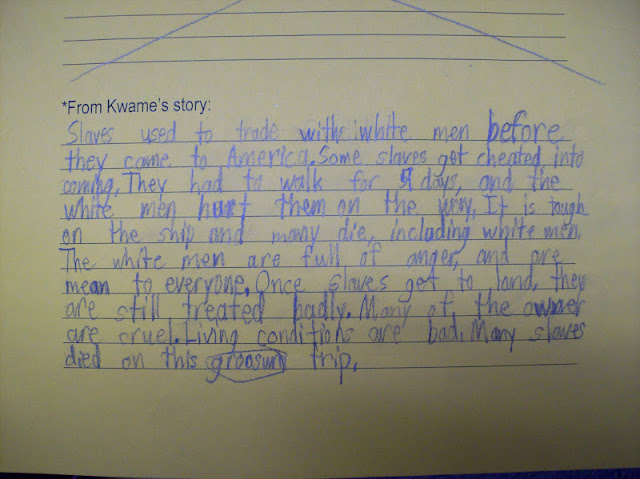 *From Kwame's story:
Slaves used to trade with white men before
they came to America. Some slaves got cheated into
coming. They had to walk for 9 days, and the
white men hurt them on the way. It is tough
on the ship and many die, including white men.
The white men are full of anger, and are
mean to everyone. Once slaves get to land, they
are still treated badly. Many of the owner
are cruel. Living conditions are bad. Many slaves
died on this groosum trip.